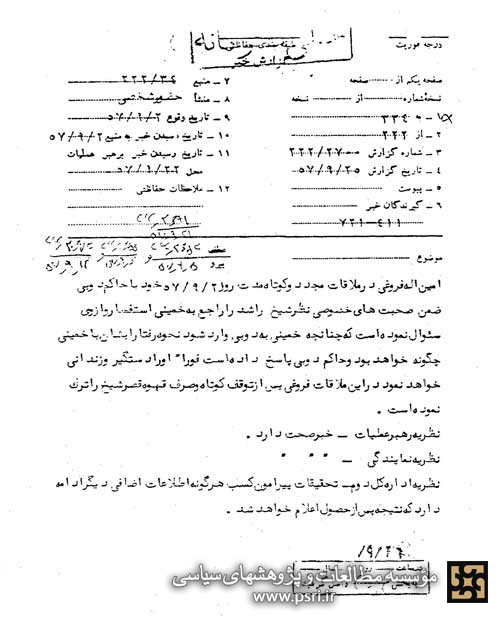 طبقه بندی حفاظتی
گزارش خبر
درجه فوریت
صفحه یکم از صفحه
نسخه شماره از نسخه
۱ـ به ۳۳۴
۲ـ از ۲۲۲
۳ـ شماره گزارش ۲۲۲/۲۷۰۰
۴ـ تاریخ گزارش ۵۷/۹/۲۵
۵ـ پیوست
۶ـ گیرندگان خبر
۷۲۱-۴۱۱
۷ـ منبع ۲۲۲/۳۴
۸ـ منشأ حضور شخصی
۹ـ تاریخ وقوع ۵۷/۹/۲
۱۰ـ تاریخ رسیدن خبر به منبع ۵۷/۹/۲
۱۱ـ تاریخ رسیدن خبر برهبر عملیات
محل ۵۷/۹/۲۲
۱۲ـ ملاحظات حفاظتی
موضوع
امین اله فروغی در ملاقات مجدد وکوتاه مدت روز ۵۷/۹/۲ خود با حاکم دوبی
ضمن صحبت های خصوصی نظر شیخ راشد را راجع به خمینی استفسار و از وی
سئوال نموده است که چنانچه خمینی به دوبی وارد شود نحوه رفتار ایشان با خمینی
چگونه خواهد بود و حاکم دوبی پاسخ داده است فوراً او را دستگیر و زندانی
خواهد نمود در این ملاقات فروغی پس از توقف کوتاه وصرف قهوه قصر شیخ را ترک
نموده است .
نظریه رهبر عملیات ـ خبر صحت دارد .
نظریه نمایندگی ـ " " "
نظریه اداره کل دوم ـ تحقیقات پیرامون کسب هرگونه اطلاعات اضافی دیگر ادامه
دارد که نتیجه پس از حصول اعلام خواهد شد .
موسسه مطالعات و پژوهشهای سیاسی
www.psri.ir